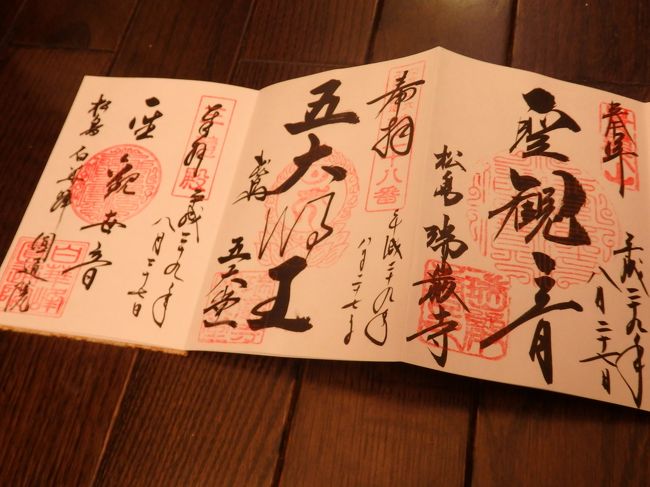 奉拝
平成二九年
八月二十七日
聖観音
松島 瑞巌寺
奉拝
八番
平成二九年
八月二十七日
五大明王
松島
五大堂
奉拝
平成二九年
八月二十七日
聖観世音
松島 白華峰 圓通院